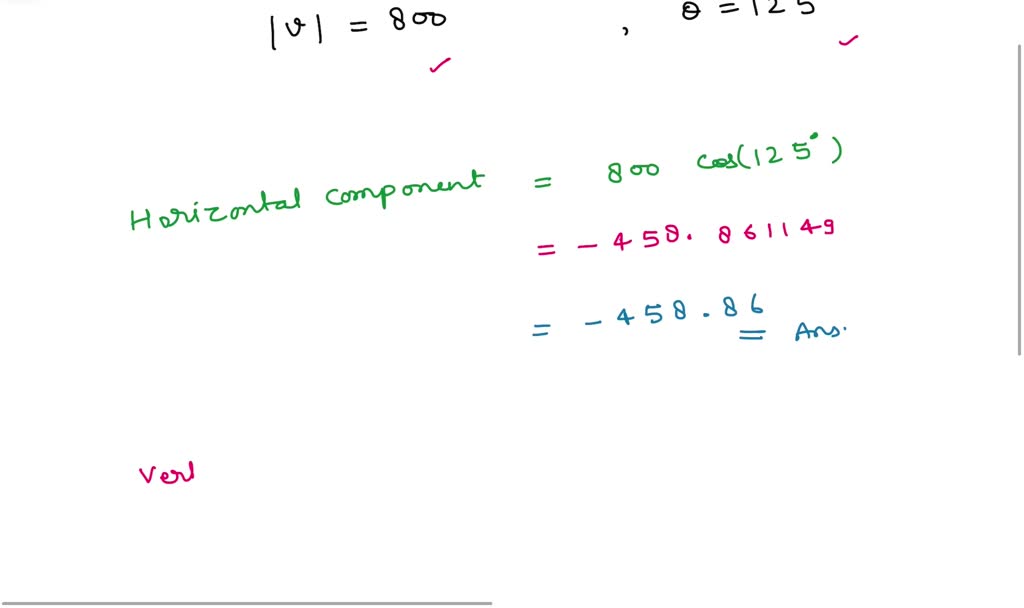 |v| = 800 , θ = 125
Horizontal component = 800 cos(125°)
= - 458.861149
= - 458.86 Ans.
Vert